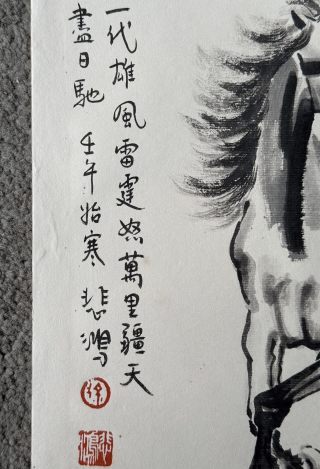 一代雄風雷霆怒萬里疆天
盡日馳 壬午始寒 悲鴻
徐
悲鴻